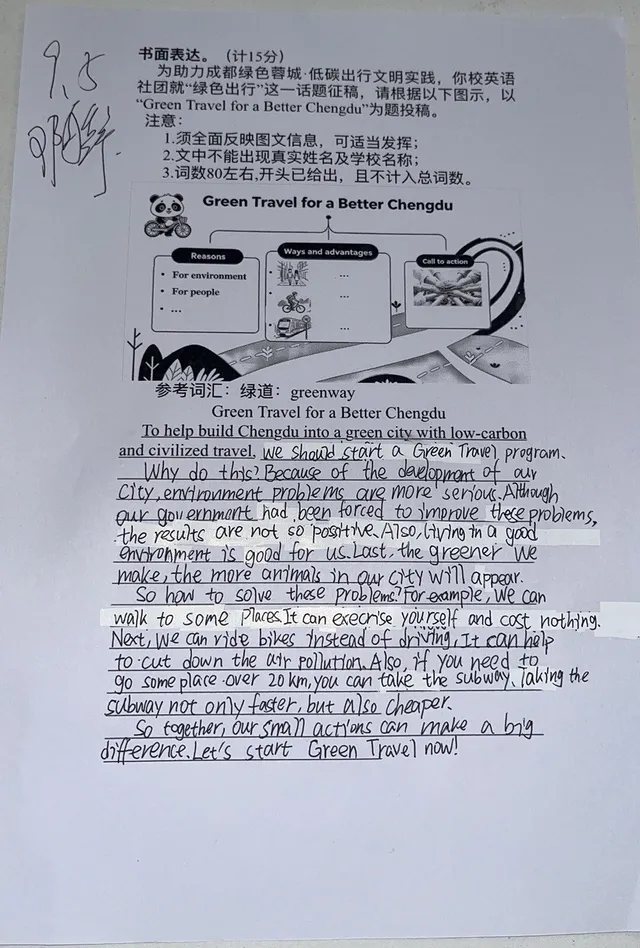 9.5
书面表达。（计15分）
为助力成都绿色蓉城·低碳出行文明实践，你校英语
社团就“绿色出行”这一话题征稿，请根据以下图示，以
“Green Travel for a Better Chengdu”为题投稿。
注意：
1.须全面反映图文信息，可适当发挥；
2.文中不能出现真实姓名及学校名称；
3.词数80左右,开头已给出，且不计入总词数。
Green Travel for a Better Chengdu
Reasons
• For environment
• For people
• ...
Ways and advantages
...
...
...
Call to action
参考词汇：绿道：greenway
Green Travel for a Better Chengdu
To help build Chengdu into a green city with low-carbon
and civilized travel, we should start a Green Travel program.
Why do this? Because of the development of our
city, environment problems are more serious. Although
our government had been forced to improve these problems,
the results are not so positive. Also, living in a good
environment is good for us. Last, the greener we
make, the more animals in our city will appear.
So how to solve these problems? For example, we can
walk to some places. It can execrise yourself and cost nothing.
Next, we can ride bikes instead of driving, It can help
to cut down the air pollution. Also, if you need to
go some place over 20 km, you can take the subway. Taking the
subway not only faster, but also cheaper.
So together, our small actions can make a big
difference. Let's start Green Travel now!